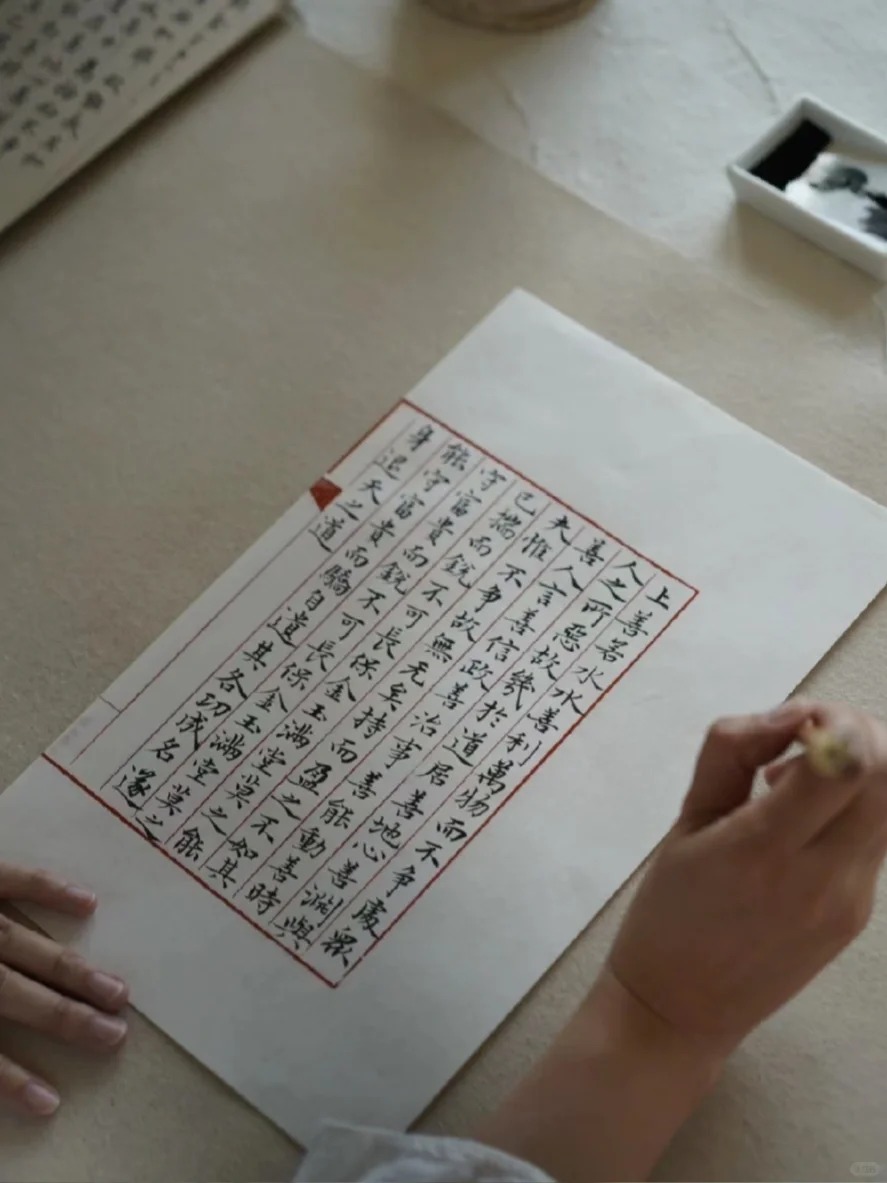 上善若水水善利萬物而不争處眾
人之所惡故幾於道居善地心善淵與
善人言善信政善治事善能動善時
夫惟不争故無尤矣持而盈之不如其
已揣而銳不可長保金玉滿堂莫之能
守富貴而銳不可長保金玉滿堂莫之
能守富貴而驕自遺其各功成名遂
身退天之道